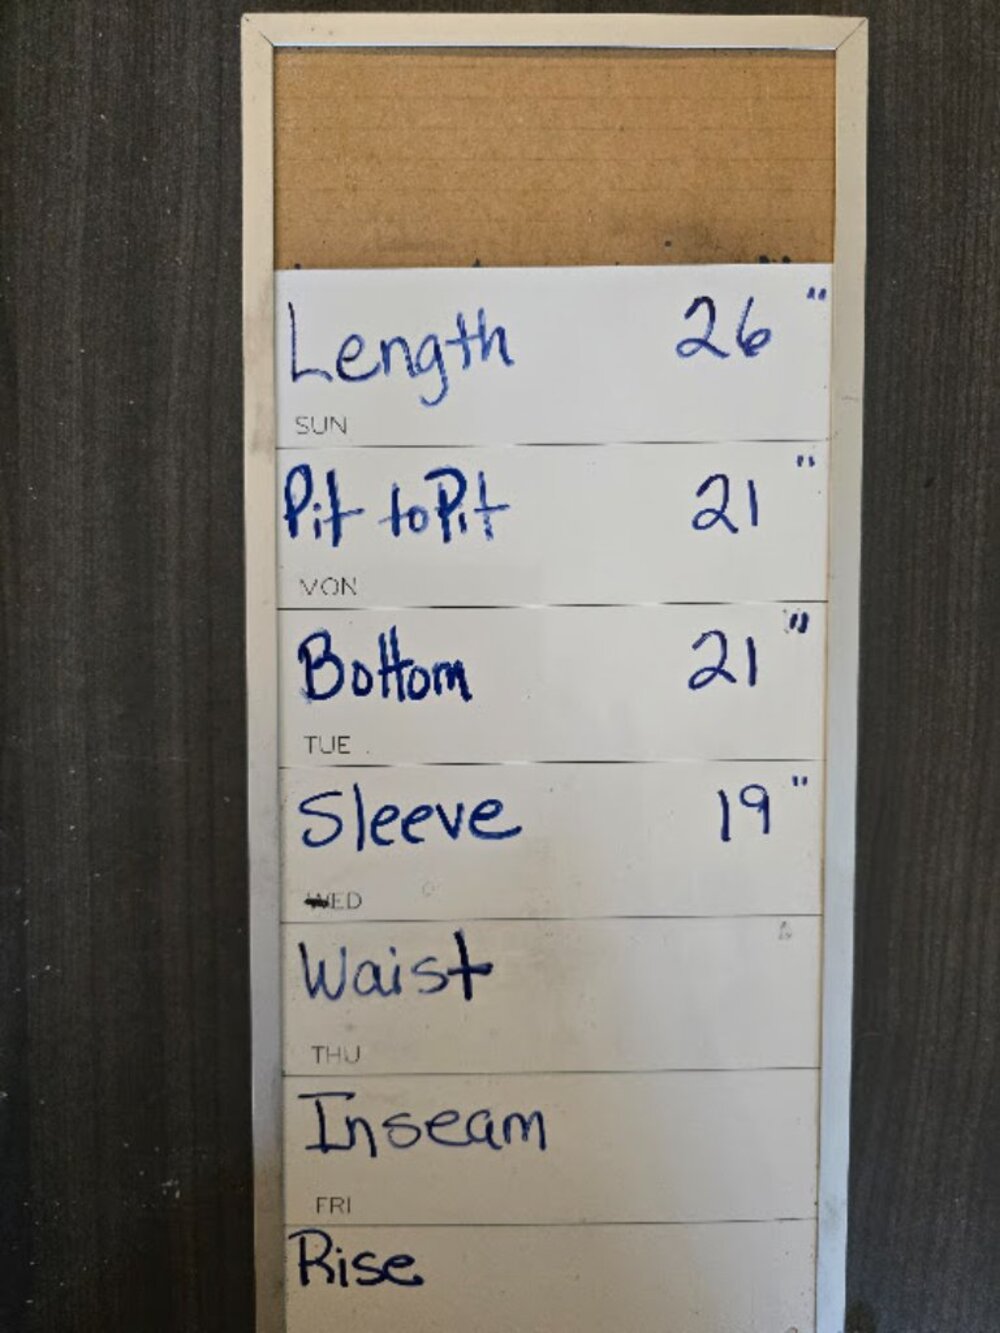 Length 26"
SUN
Pit to Pit 21"
MON
Bottom 21"
TUE
Sleeve 19"
WED
Waist
THU
Inseam
FRI
Rise